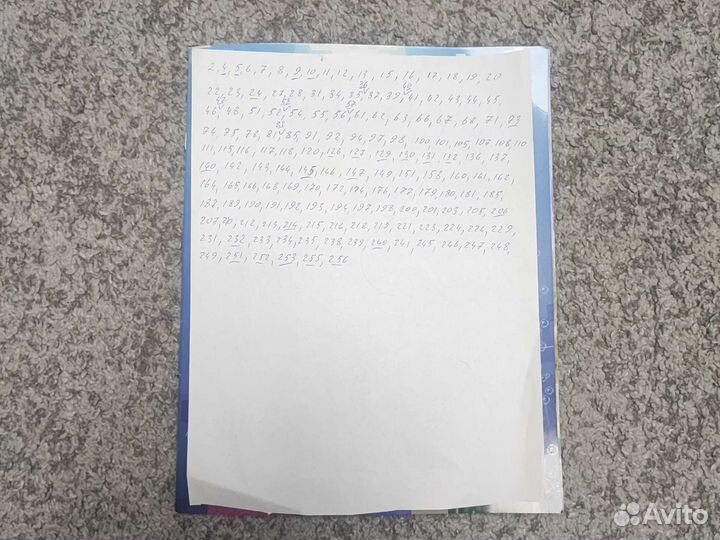 2, 4, 5, 6, 7, 8, 9, 10, 11, 12, 13, 15, 16, 17, 18, 19, 20
22, 23, 24, 27, 28, 31, 34, 35, 37, 39, 41, 42, 43, 44, 45,
46, 48, 51, 52, 54, 55, 56, 61, 62, 63, 66, 67, 68, 71, 73
74, 75, 78, 81, 85, 91, 92, 94, 97, 98, 100, 101, 105, 107, 108, 110
111, 115, 116, 117, 118, 120, 126, 127, 129, 130, 131, 132, 136, 137,
140, 142, 143, 144, 145, 146, 147, 149, 151, 158, 160, 161, 162,
164, 165, 166, 168, 169, 170, 172, 174, 176, 177, 179, 180, 181, 185,
187, 189, 190, 191, 192, 193, 194, 197, 198, 200, 201, 203, 205, 206
207, 212, 213, 214, 215, 216, 218, 219, 221, 223, 224, 226, 229,
231, 232, 233, 234, 235, 238, 239, 240, 241, 245, 246, 247, 248,
249, 251, 252, 253, 255, 256
Avito